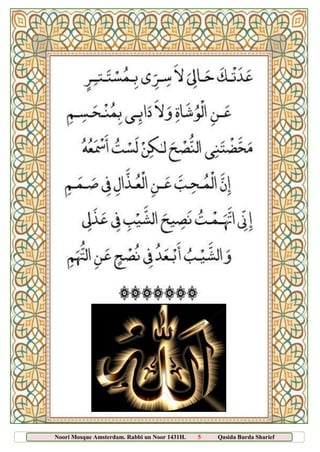 عَدَتْكَ حَالِىَ لَا سِرِّى بِمُسْتَتِرٍ
عَنِ الْوُشَاةِ وَلَا دَابِى بِمُنْحَسِمِ
مَحَّضْتَنِى النُّصْحَ لٰكِنْ لَسْتُ أَسْمَعُهُ
إِنَّ الْمُحِبَّ عَنِ الْعُذَّالِ فِى صَمَمِ
إِنِّى اتَّهَمْتُ نَصِيحَ الشَّيْبِ فِى عَذَلِى
وَالشَّيْبُ أَبْعَدُ فِى نُصْحٍ عَنِ التُّهَمِ
الله
Noori Mosque Amsterdam. Rabbi un Noor 1431H. 5 Qasida Burda Sharief